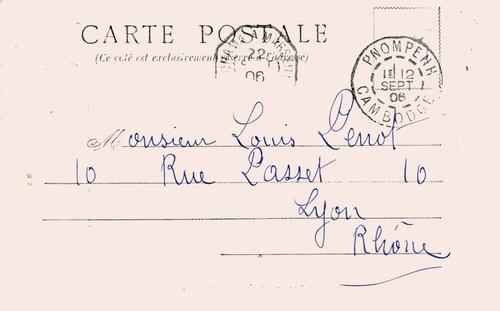 CARTE POSTALE
(Ce côté est exclusivement réservé à l'adresse)
22
06
PNOMPENH
1E 12
SEPT
06
CAMBODGE
Monsieur Louis Penot
10 Rue Passet 10
Lyon
Rhône